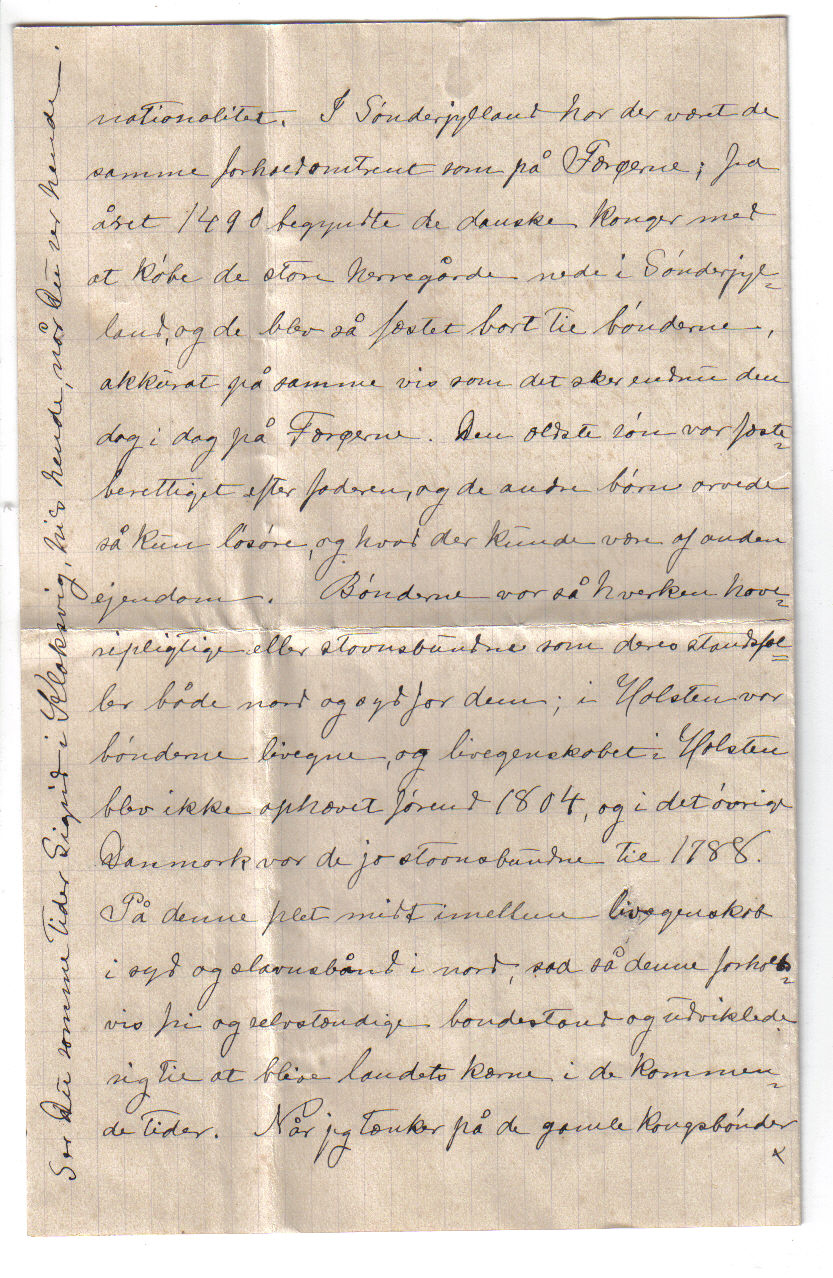 nationalitet. I Sónderjylland har der været de
samme forhold omtrent som på Færøerne; fra
året 1490 begyndte de danske konger med
at kóbe de store herregårde nede i Sónderjyl=
land, og de blev så fæstet bort til bónderne,
akkurat på samme vis som det sker endnu den
dag i dag på Færøerne. Den ældste són var fæste=
berettiget efter faderen, og de andre bórn arvede
så kun lösóre, og hvad der kunde være af anden
ejendom. Bónderne var så hverken hove=
ripligtige eller stavnsbundne som deres standsfæl=
ler både nord og syd for dem; i Holsten var
bónderne livegne, og livegenskabet i Holsten
blev ikke ophævet fórend 1804, og i det óvrige
Danmark var de jo stavnsbundne til 1788.
På denne plet midt imellem livegenskab
i syd og stavnsbånd i nord, sad så denne forholds=
vis fri og selvstændige bondestand og udviklede
sig til at blive landets kærne i de kommen=
de tider. Når jeg tænker på de gamle kongsbónder
x
Ser Du somme tider Sigrid i Klaksvig, hils hende, når Du ser hende.